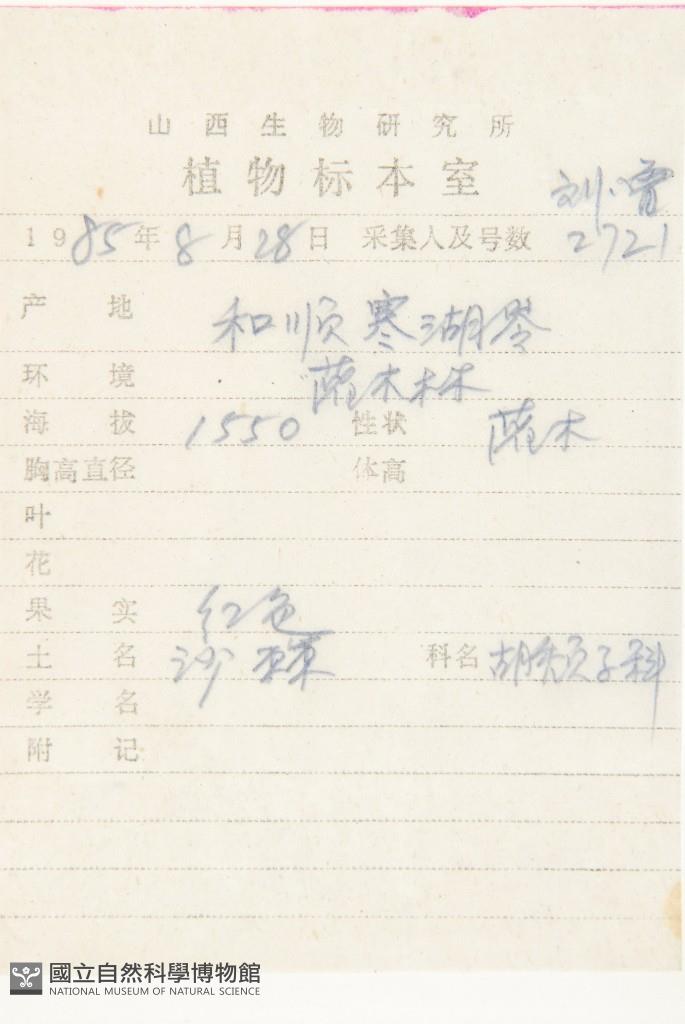 山西生物研究所
植物标本室
刘 曹
1985年8月28日 采集人及号数 2721
产地 和顺寒湖岺
环境 灌木林
海拔 1550 性状 灌木
胸高直径 体高
叶
花
果实 红色
土名 沙棘 科名 胡颓子科
学名
附记
國立自然科學博物館
NATIONAL MUSEUM OF NATURAL SCIENCE